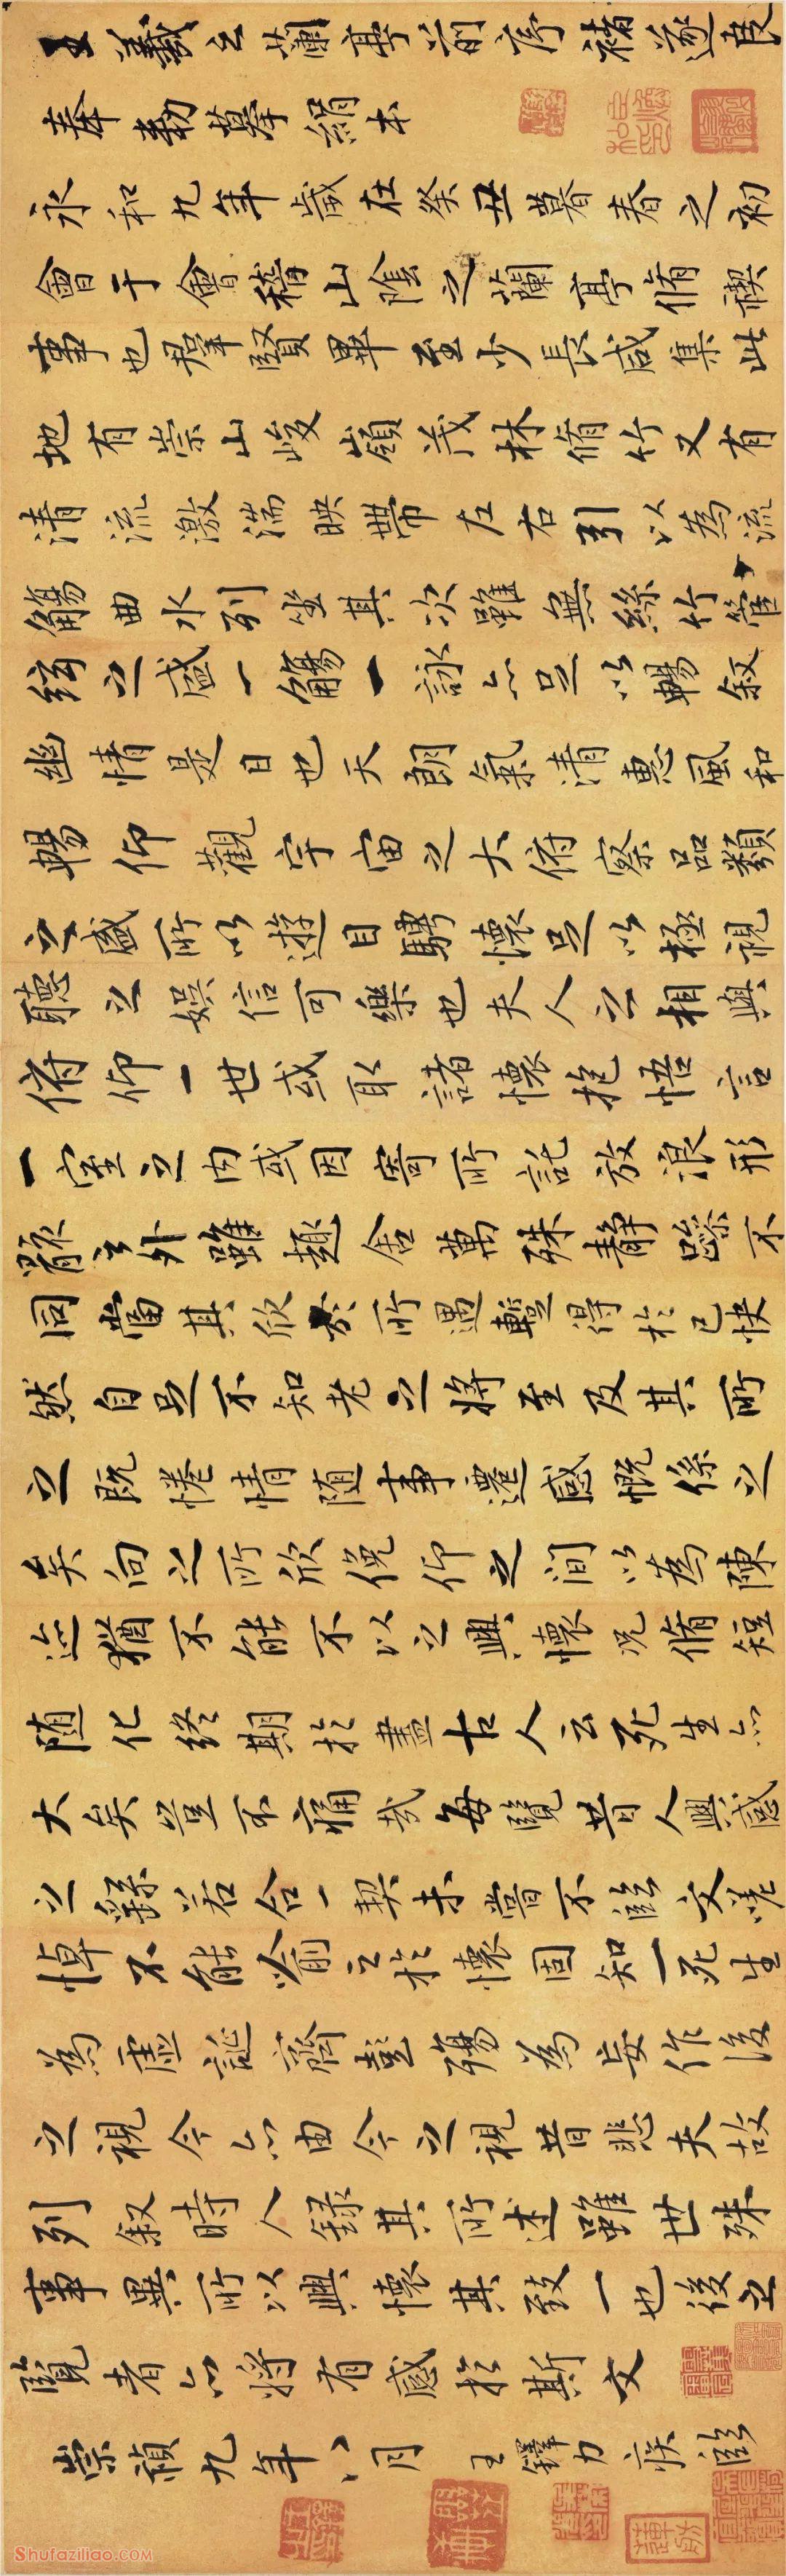 王羲之蘭亭前序褚遂良
奉勅摹絹本
永和九年歲在癸丑暮春之初
會于會稽山陰之蘭亭脩禊
事也羣賢畢至少長咸集此
地有崇山峻嶺茂林脩竹又有
清流激湍映帶左右引以為流
觴曲水列坐其次雖無絲竹管
絃之盛一觴一詠亦足以暢叙
幽情是日也天朗氣清惠風和
暢仰觀宇宙之大俯察品類
之盛所以遊目騁懷足以極視
聽之娛信可樂也夫人之相與
俯仰一世或取諸懷抱悟言
一室之内或因寄所託放浪形
骸之外雖趣舍萬殊靜躁不
同當其欣於所遇蹔得於己快
然自足不知老之將至及其所
之既惓情随事遷感慨係之
矣向之所欣俛仰之間以為陳
迹猶不能不以之興懷況脩短
随化終期於盡古人云死生亦
大矣豈不痛哉每覽昔人興感
之繇若合一契未嘗不臨文嗟
悼不能喻之於懷固知一死生
為虛誕齊彭殤為妄作後
之視今亦由今之視昔悲夫故
列叙時人録其所述雖世殊
事異所以興懷其致一也後之
覽者亦將有感於斯文
崇禎九年八月 王鐸力疾臨
Shufaziliao.COM